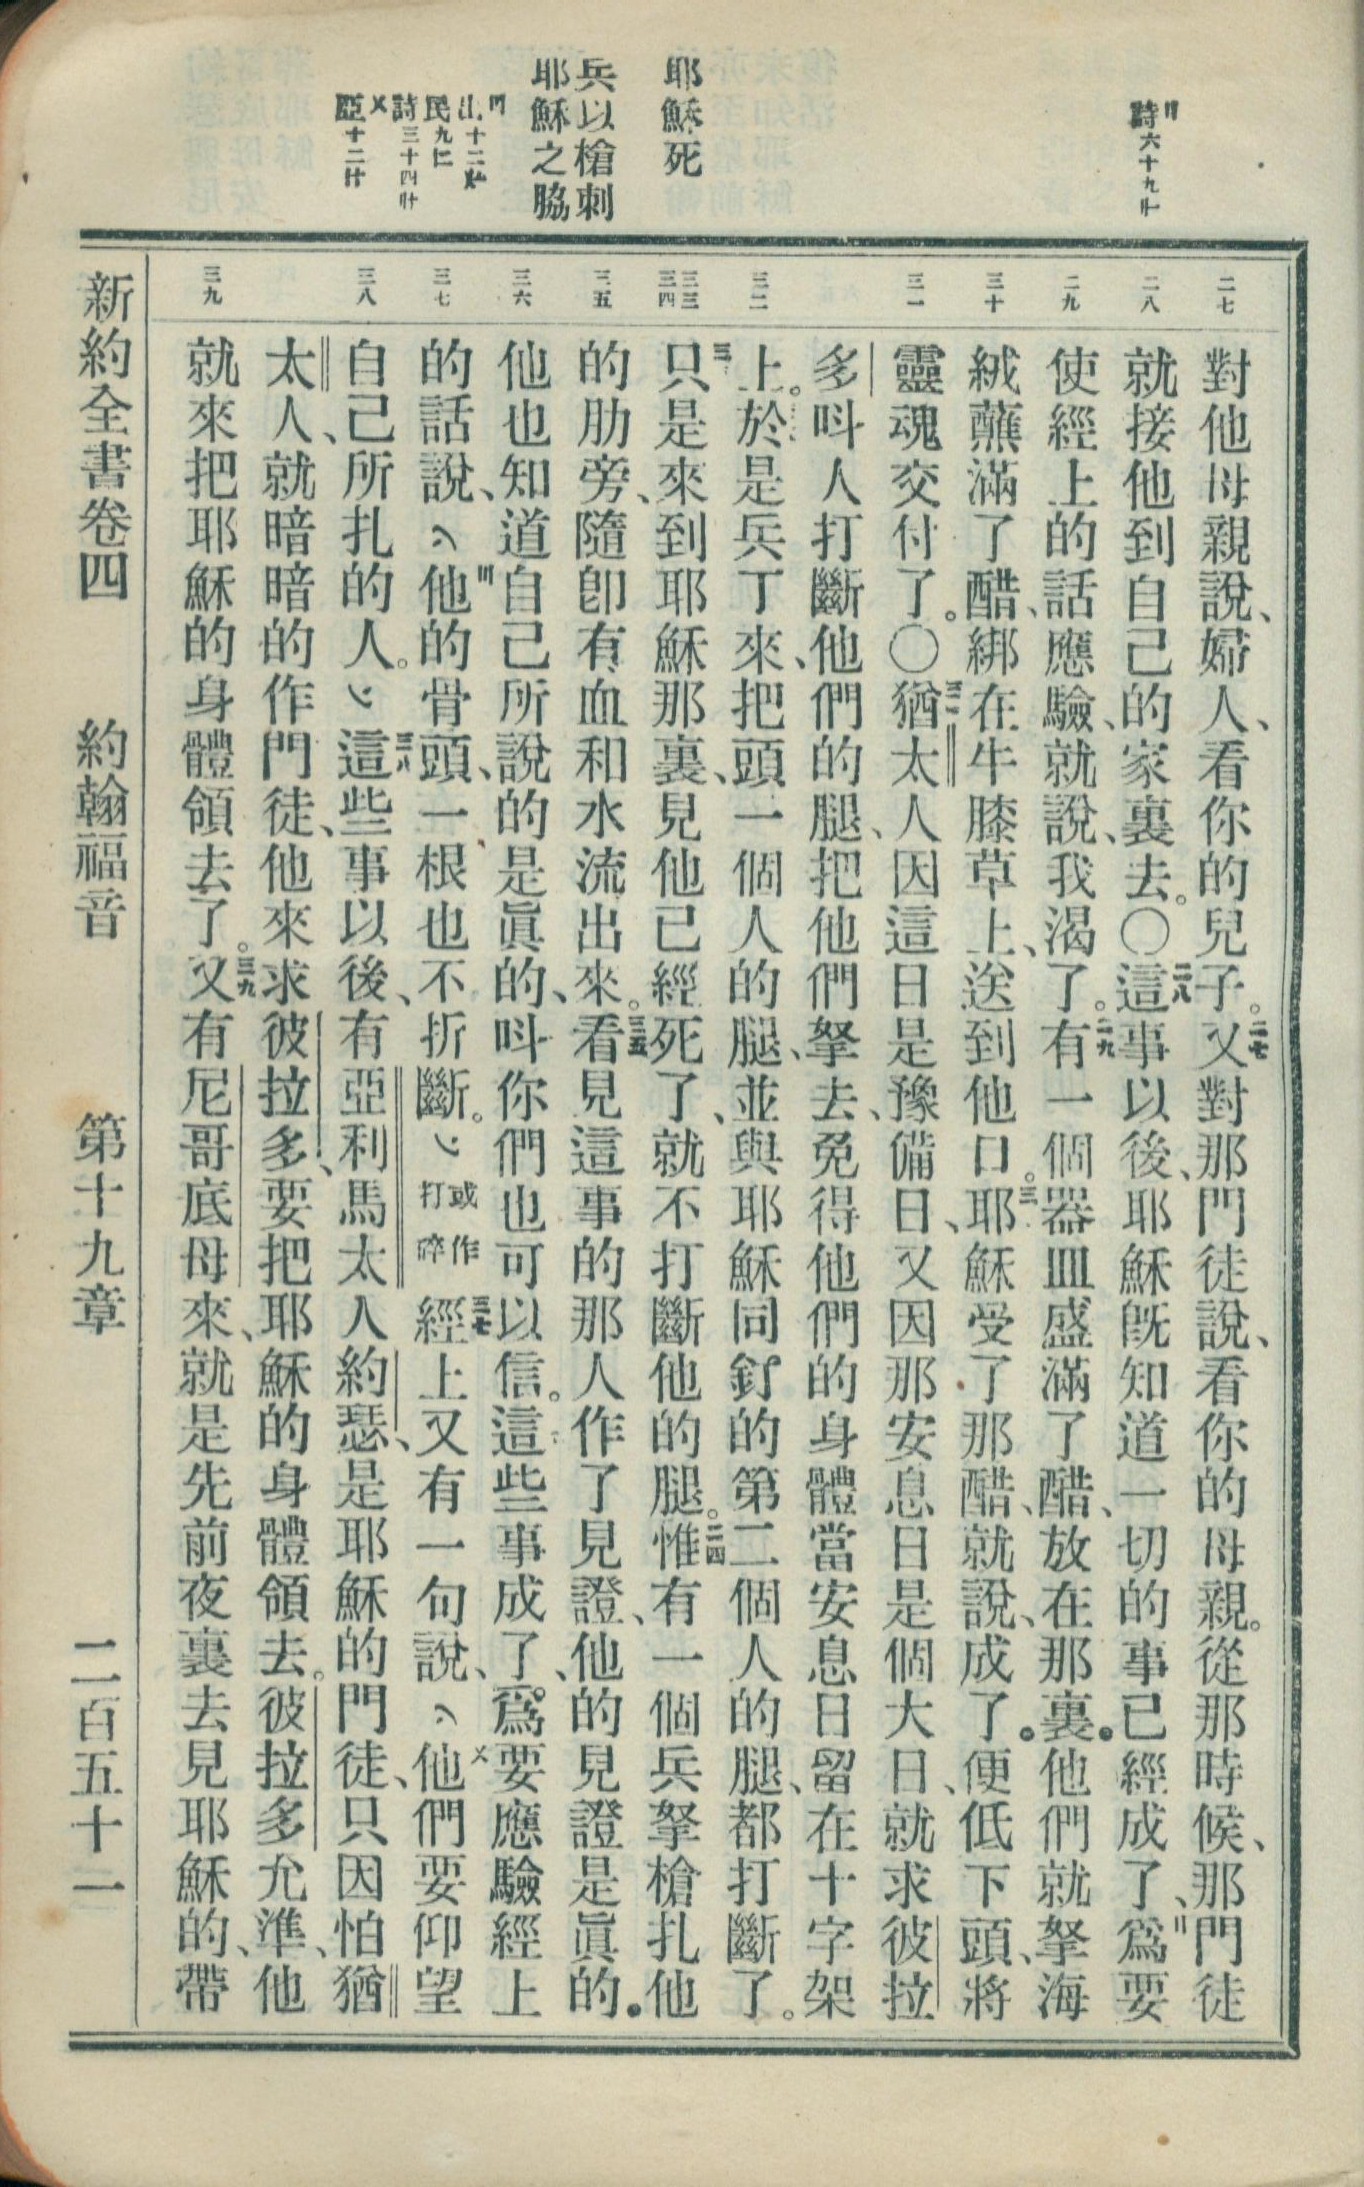 詩六十九
耶穌死
兵以槍刺
耶穌之脇
出十二
民九
詩三十四
亞十二
二七
二八
二九
三十
三一
三二
三三
三四
三五
三六
三七
三八
三九
對他母親說、婦人、看你的兒子。二七又對那門徒說、看你的母親。從那時候、那門徒
就接他到自己的家裏去。〇二八這事以後、耶穌既知道一切的事已經成了、爲要
使經上的話應驗、就說、我渴了。二九有一個器皿盛滿了醋、放在那裏。他們就拏海
絨蘸滿了醋、綁在牛膝草上、送到他口。三十耶穌受了那醋、就說、成了。便低下頭、將
靈魂交付了。〇三一猶太人因這日是豫備日、又因那安息日是個大日、就求彼拉
多呌人打斷他們的腿、把他們拏去、免得他們的身體當安息日留在十字架
上。於是兵丁來、把頭一個人的腿、並與耶穌同釘的第二個人的腿、都打斷了。
三三只是來到耶穌那裏、見他已經死了、就不打斷他的腿。三四惟有一個兵拏槍扎他
的肋旁、隨卽有血和水流出來。三五看見這事的那人作了見證、他的見證是眞的。
他也知道自己所說的是眞的、呌你們也可以信。這些事成了、爲要應驗經上
的話說、他的骨頭、一根也不折斷。或作打碎三七經上又有一句說、他們要仰望
自己所扎的人。三八這些事以後、有亞利馬太人約瑟、是耶穌的門徒、只因怕猶
太人、就暗暗的作門徒、他來求彼拉多、要把耶穌的身體領去。彼拉多允準、他
就來把耶穌的身體領去了。三九又有尼哥底母來、就是先前夜裏去見耶穌的、帶
新約全書卷四 約翰福音 第十九章 二百五十一